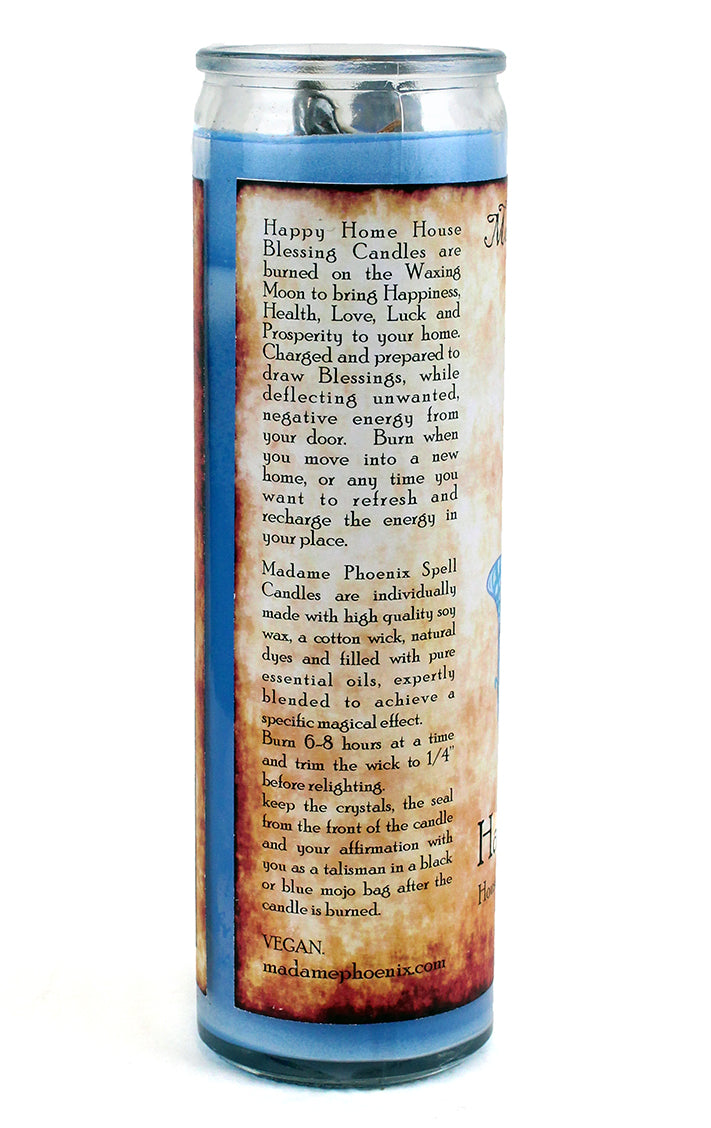 Happy Home House
Blessing Candles are
burned on the Waxing
Moon to bring Happiness,
Health, Love, Luck and
Prosperity to your home.
Charged and prepared to
draw Blessings, while
deflecting unwanted,
negative energy from
your door. Burn when
you move into a new
home, or any time you
want to refresh and
recharge the energy in
your place.
Madame Phoenix Spell
Candles are individually
made with high quality soy
wax, a cotton wick, natural
dyes and filled with pure
essential oils, expertly
blended to achieve a
specific magical effect.
Burn 6-8 hours at a time
and trim the wick to 1/4"
before relighting.
keep the crystals, the seal
from the front of the candle
and your affirmation with
you as a talisman in a black
or blue mojo bag after the
candle is burned.
VEGAN.
madamephoenix.com